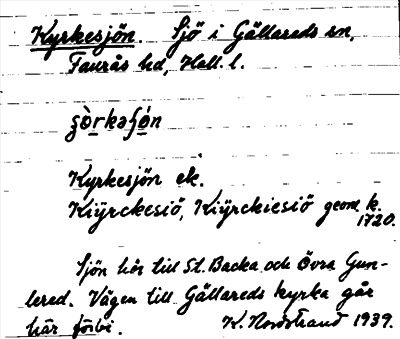 Kyrkesjön. Sjö i Gällareds sn,
Faurås hd, Hall. l.
Kyrkesjön ek.
Kiÿrckesiö, Kiÿrckiesiö geom. k.
1720.
Sjön hör till St. Backa och Övra Gun-
lered. Vägen till Gällareds kyrka går
här förbi. K. Nordstrand 1939.